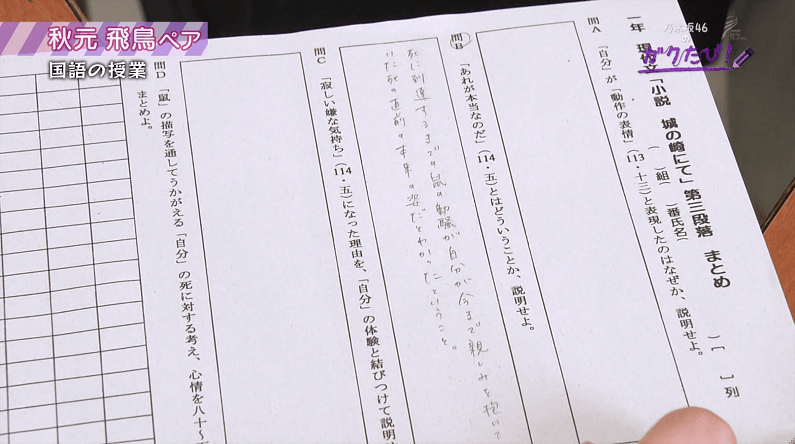 秋元 飛鳥ペア
国語の授業
乃木坂46
の
ガクたび!
一年 現代文「小説 城の崎にて」第三段落 まとめ
( )組( )番氏名( )〔 〕列
問A 「自分」が「動作の表情」(113・十三)と表現したのはなぜか、説明せよ。
問B 「あれが本当なのだ」(114・五)とはどういうことか、説明せよ。
死に到達するまでの鼠の動騒が自分が今まで親しみを抱いて
いた死の直前の本来の姿だとわかったということ。
問C 「寂しい嫌な気持ち」(114・五)になった理由を、「自分」の体験と結びつけて説明
問D 「鼠」の描写を通してうかがえる「自分」の死に対する考え、心情を八十~
まとめよ。